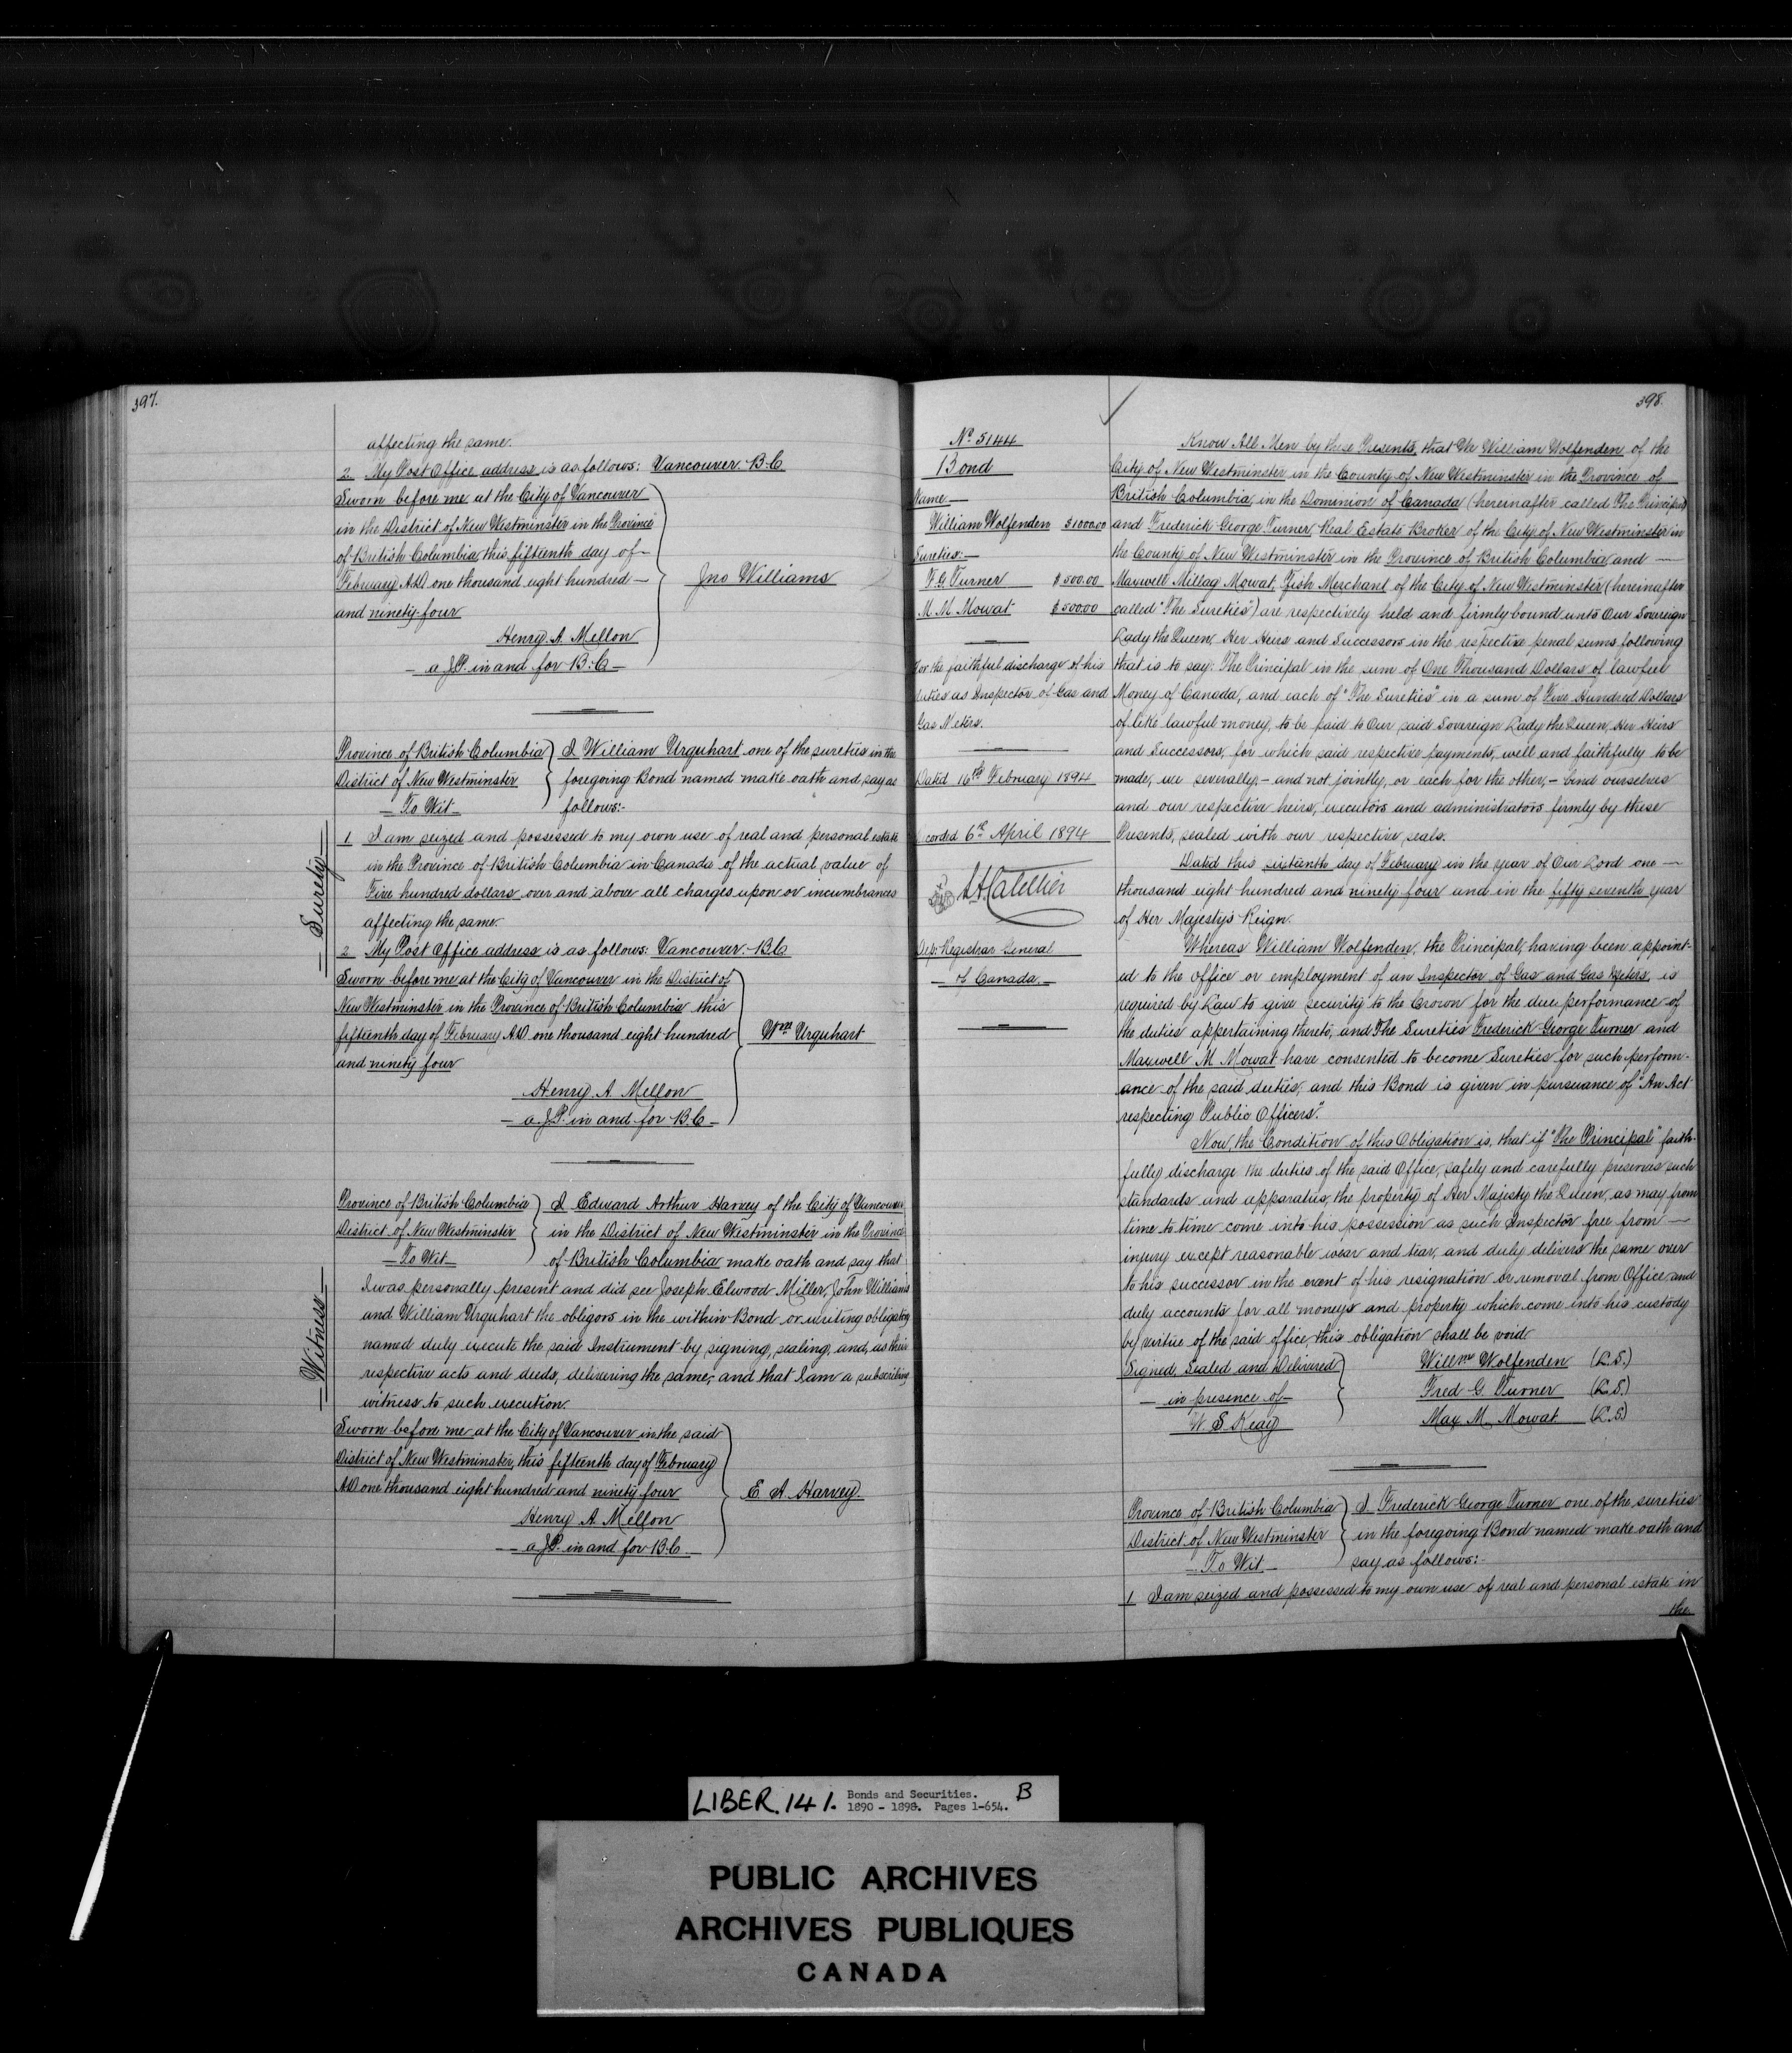 397.
affecting the same.
2 My Post Office address is as follows: Vancouver B.C
Sworn before me at the City of Vancouver
in the District of New Westminster in the Province
of British Columbia this fifteenth day of —
February A.D. one thousand eight hundred —
and ninety-four
Jno Williams
Henry. A. Mellon
— a J.P. in and for B.C —
Province of British Columbia
District of New Westminster
— To Wit —
I William Urquhart one of the sureties in the
foregoing Bond named make oath and say as
follows:-
— Surety —
1 I am seized and possessed to my own use of real and personal estate
in the Province of British Columbia in Canada of the actual value of
Five hundred dollars over and above all charges upon or incumbrances
affecting the same.
2 My Post Office address is as follows: Vancouver. B.C
Sworn before me at the City of Vancouver in the District of
New Westminster in the Province of British Columbia this
fifteenth day of February A.D one thousand eight hundred
and ninety four
Wm Urquhart
Henry. A. Mellon
— a J.P. in and for B.C —
Province of British Columbia
District of New Westminster
— To Wit —
I Edward Arthur Harvey of the City of Vancouver
in the District of New Westminster in the Province
of British Columbia make oath and say that
— Witness —
I was personally present and did see Joseph Elwood Miller, John Williams
and William Urquhart the obligors in the within Bond or writing obligatory
named duly execute the said Instrument by signing, sealing, and, as their
respective acts and deeds, delivering the same; and that I am a subscribing
witness to such execution.
Sworn before me at the City of Vancouver in the said
District of New Westminster, this fifteenth day of February
A.D one thousand eight hundred and ninety four
E A. Harvey.
Henry A. Mellon
— a J.P. in and for B.C —
398.
No. 5144
Bond
Name —
William Wolfenden $1000.00
Sureties: —
F. G. Turner $500.00
M. M. Mowat $500.00
For the faithful discharge of his
duties as Inspector of Gas and
Gas Meters.
Dated 16th February 1894
corded 6th April 1894
Dep. Registrar General
— of Canada. —
Know All Men by these Presents, that We William Wolfenden of the
City of New Westminster in the County of New Westminster in the Province of
British Columbia, in the Dominion of Canada (hereinafter called "The Principal")
and Frederick George Turner, Real Estate Broker of the City of New Westminster in
the County of New Westminster in the Province of British Columbia, and —
Maxwell Mowat, Fish Merchant of the City of New Westminster (hereinafter
called "The Sureties") are respectively held and firmly bound unto Our Sovereign
Lady the Queen, Her Heirs and Successors in the respective penal sums following
that is to say: The Principal in the sum of One Thousand Dollars of lawful
Money of Canada, and each of "The Sureties" in a sum of Five Hundred Dollars
of like lawful money, to be paid to Our said Sovereign Lady the Queen, Her Heirs
and Successors, for which said respective payments, well and faithfully to be
made, we severally, — and not jointly, or each for the other, — bind ourselves
and our respective heirs, executors and administrators firmly by these
Presents, sealed with our respective seals.
Dated this sixteenth day of February in the year of Our Lord one —
thousand eight hundred and ninety four and in the fifty seventh year
of Her Majesty's Reign.
Whereas William Wolfenden, the Principal, having been appoint-
ed to the office or employment of an Inspector of Gas and Gas Meters, is
required by Law to give security to the Crown for the due performance of
the duties appertaining thereto, and The Sureties Frederick George Turner and
Maxwell M. Mowat have consented to become Sureties for such perform-
ance of the said duties, and this Bond is given in pursuance of "An Act
respecting Public Officers".
Now, the Condition of this Obligation is, that if "The Principal" faith-
fully discharge the duties of the said Office, safely and carefully preserves such
standards and apparatus, the property of Her Majesty the Queen, as may from
time to time come into his possession as such Inspector free from —
injury except reasonable wear and tear, and duly delivers the same over
to his successor in the event of his resignation or removal from Office and
duly accounts for all moneys and property which come into his custody
by virtue of the said office, this obligation shall be void
Signed, Sealed and Delivered
— in presence of —
Willm Wolfenden (L.S.)
Fred G. Turner (L.S.)
Max M. Mowat (L.S)
Province of British Columbia
District of New Westminster
— To Wit —
I Frederick George Turner one of the sureties
in the foregoing Bond named make oath and
say as follows:-
1 I am seized and possessed to my own use of real and personal estate in
the
LIBER. 141. Bonds and Securities. B
1890 - 1898. Pages 1-654.
PUBLIC ARCHIVES
ARCHIVES PUBLIQUES
CANADA